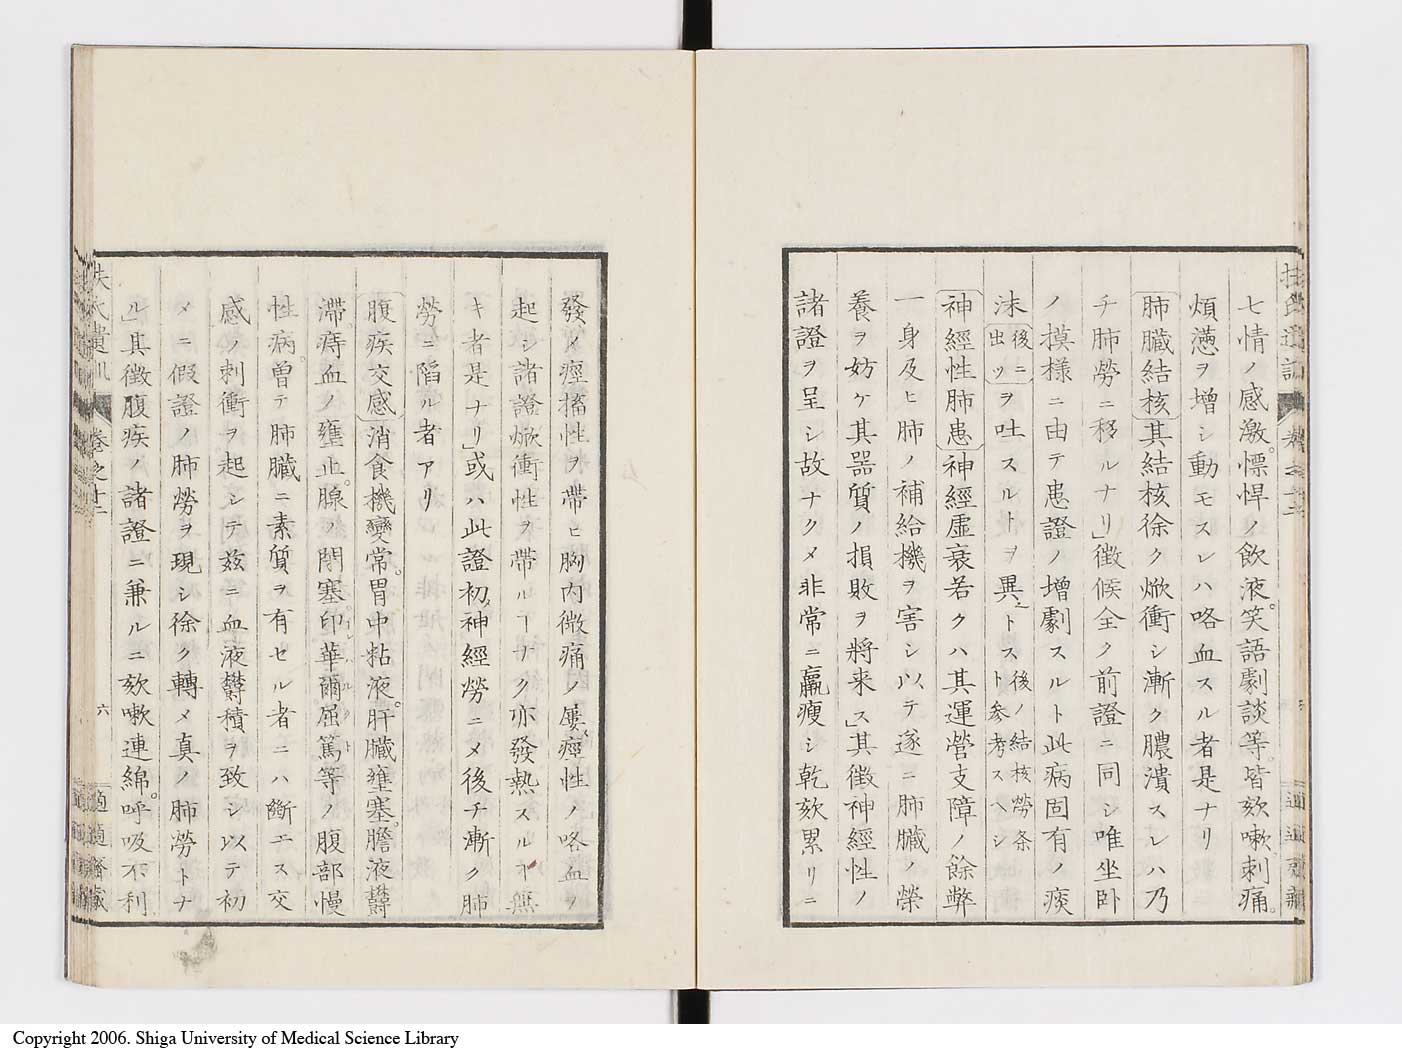 七情ノ感激。慓悍ノ飲液。笑語劇談等。皆欬嗽。刺痛。
煩懣ヲ增シ動モスレハ咯血スル者是ナリ
肺臓結核其結核徐ク焮衝シ漸ク膿潰スレハ乃
チ肺勞ニ移ルナリ」徴候全ク前證ニ同シ唯坐卧
ノ摸様ニ由テ患證ノ增劇スルト此病固有ノ痰
沫後ニ出ツヲ吐スルトヲ異ニトス後ノ結核勞条ト参考スヘシ
神經性肺患神經虛衰若クハ其運營支障ノ餘弊
一身及ヒ肺ノ補給機ヲ害シ以テ遂ニ肺臓ノ榮
養ヲ妨ケ其器質ノ損敗ヲ將来ス」其徴神經性ノ
諸證ヲ呈シ故ナクメ非常ニ羸瘦シ乾欬累リニ
發メ痙搐性ヲ帶ヒ胸内微痛ノ屢痙性ノ咯血ヲ
起シ諸證焮衝性ヲ帶ルヿナク亦發熱スルヿ無
キ者是ナリ」或ハ此證初メ神經勞ニメ後チ漸ク肺
勞ニ陷ル者アリ
腹疾交感消食機變常。胃中粘液。肝臓壅塞。膽液鬱
滯。痔血ノ壅止。腺ノ閉塞印華爾屈篤等ノ腹部慢
性病。曽テ肺臓ニ素質ヲ有セル者ニハ斷エス交
感ノ刺衝ヲ起シテ兹ニ血液鬱積ヲ致シ以テ初
メニ假證ノ肺勞ヲ現シ徐ク轉メ真ノ肺勞トナ
ル」其徴腹疾ノ諸證ニ兼ルニ欬嗽連綿。呼吸不利
扶氏遺訓
卷之十二
六
適適齋藏